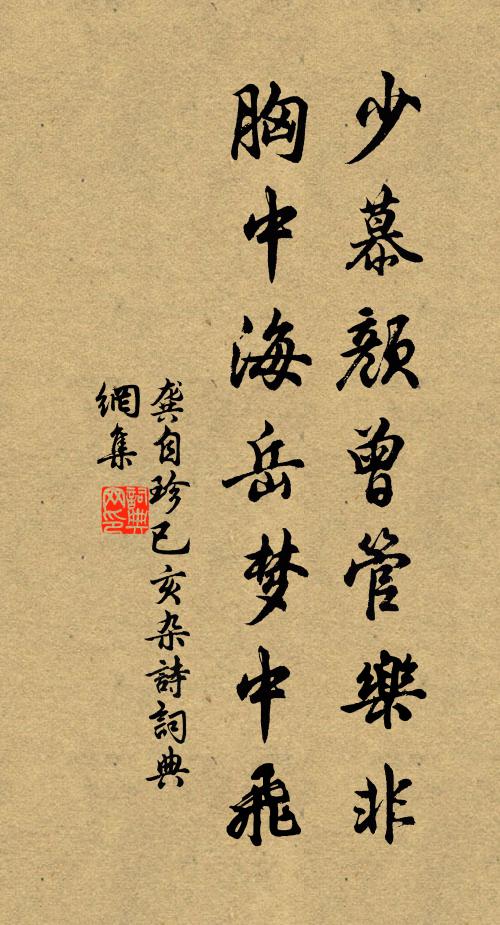 少慕颜曾管樂非
胸中海岳梦中飛
龚自珍己亥杂詩詞典
網集
詞典
网印